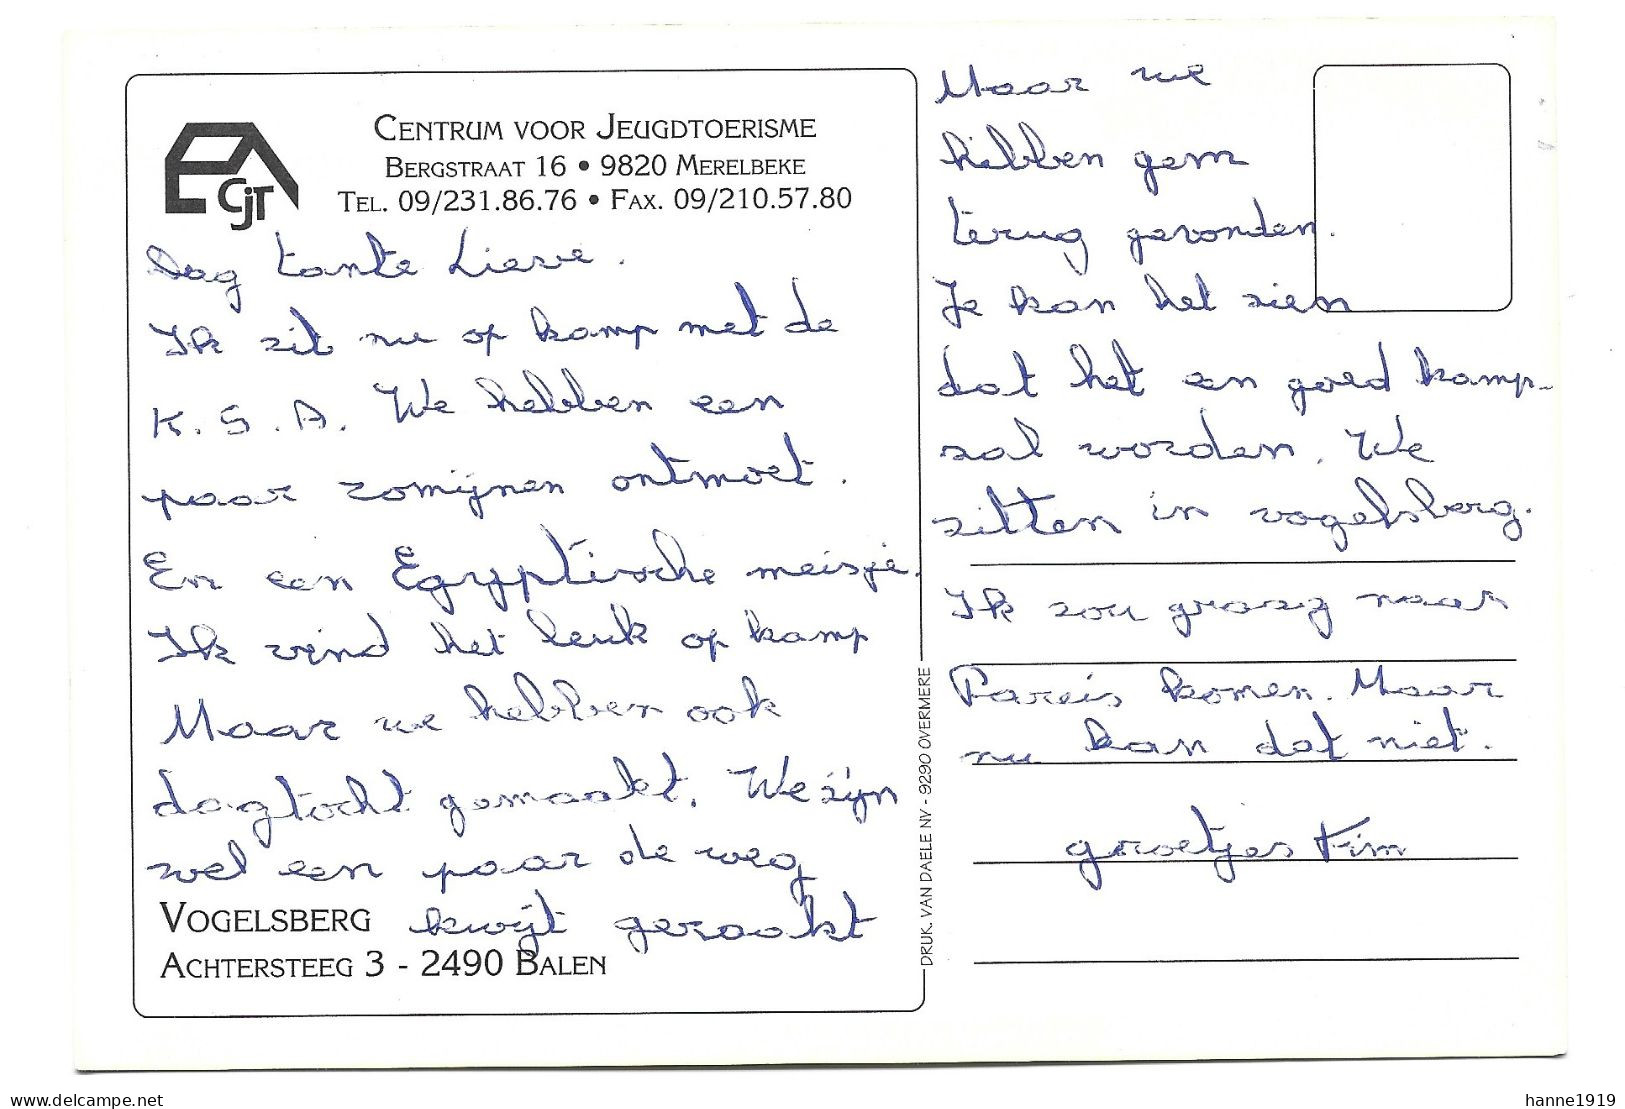 CENTRUM VOOR JEUGDTOERISME
BERGSTRAAT 16 • 9820 MERELBEKE
TEL. 09/231.86.76 • FAX. 09/210.57.80
CJT
Dag tante Lieve.
Ik zit nu op kamp met de
K.S.A. We hebben een
paar romijnen ontmoet.
En een Egyptische meisje.
Ik vind het leuk op kamp
Maar we hebben ook
dagtocht gemaakt. We zijn
wel een paar de weg
kwijt geraakt
VOGELSBERG
ACHTERSTEEG 3 - 2490 BALEN
DRUK. VAN DAELE NV - 9290 OVERMERE
Maar we
hebben hem
terug gevonden.
Je kan het zien
dat het een goed kamp
zal worden. We
zitten in vogelsberg.
Ik zou graag naar
Pareis komen. Maar
nu kan dat niet.
groetjes Kim
www.delcampe.net
hanne1919